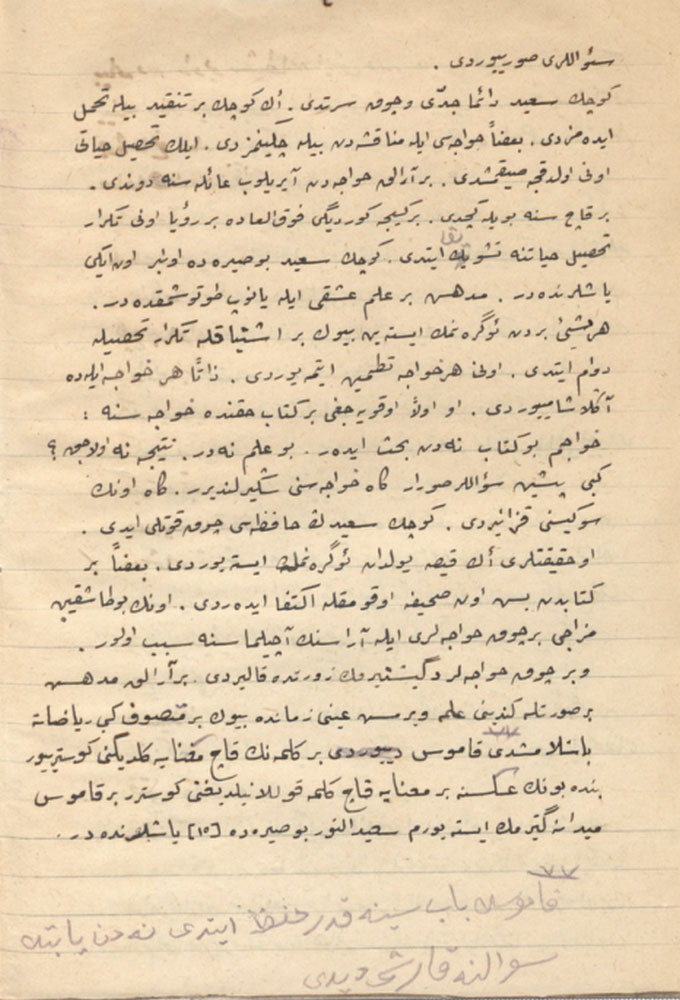 سئواللری صورییوردی .
كوچك سعید دائما جدّی وچوق سرتدی . أك كوچك بر تنقید بیله تحمل
ایده مزدی . بعضاً خواجه‌سی ایله مناقشه‌دن بیله چكینمزدی . ایلك تحصیل حیاتی
اونی اولدقجه صیقمشدی . بر آرالق خواجه‌دن آیریلوب عائله سنه دوندی .
بر قاچ سنه بویله كچدی . بر كیجه كوردیگی فوق‌العاده بر رؤیا اونی تكرار
تحصیل حیاتنه تشویق ایتدی . كوچك سعید بو صیره ده اونبر اون ایكی
یاشلرنده در . مدهش بر علم عشقی ایله یانوب طوتوشمقده در .
هرشیئی بردن ئوگره نمك ایسته ین بیوك بر اشتیاقله تكرار تحصیله
دوام ایتدی . اونی هر خواجه تطمین ایتمه یوردی . ذاتًا هر خواجه ایله ده
آڭلاشامییوردی . او اولاً اوقویه جغی بر كتاب حقنده خواجه سنه :
خواجم بو كتاب نه دن بحث ایده ر . بو علم نه در . نتیجه نه اولاجق ؟
كبی پیشین سؤاللر صورار گاه خواجه سنی سڭیرلندیرر . گاه اونك
سوگیسنی قزانیردی . كوچك سعیدك حافظه سی چوق قوتلی ایدی .
او حقیقتلری أك قیصه یولدان ئوگره نمك ایسته یوردی . بعضاً بر
كتابدن بش اون صحیفه اوقومقله اكتفا ایده ردی . اونك بو طاشقین
مزاجی بر چوق خواجه لری ایله آراسنك آچیلماسنه سبب اولور .
و بر چوق خواجه لر دگیشدیرمك زورنده قالیردی . بر آرالق مدهش
بر صورتله كندینی علمه ویرمش عینی زمانده بیوك بر متصوف كبی ریاضاته
باشلامشدی قاموس دییوردی بر كلمه نك قاچ معنایه كلدیگنی كوسترییور
بنده بونك عكسنه بر معنایه قاچ كلمه قوللانیلدیغنی كوسترر بر قاموس
میدانه گتیرمك ایسته یورم سعید النور بو صیره ده [١٥] یاشلرنده در .
٧٧
قاموسك باب سینه قدر حفظ ایتدی نه دن یاپتك
سوالنه قارشی دیدی